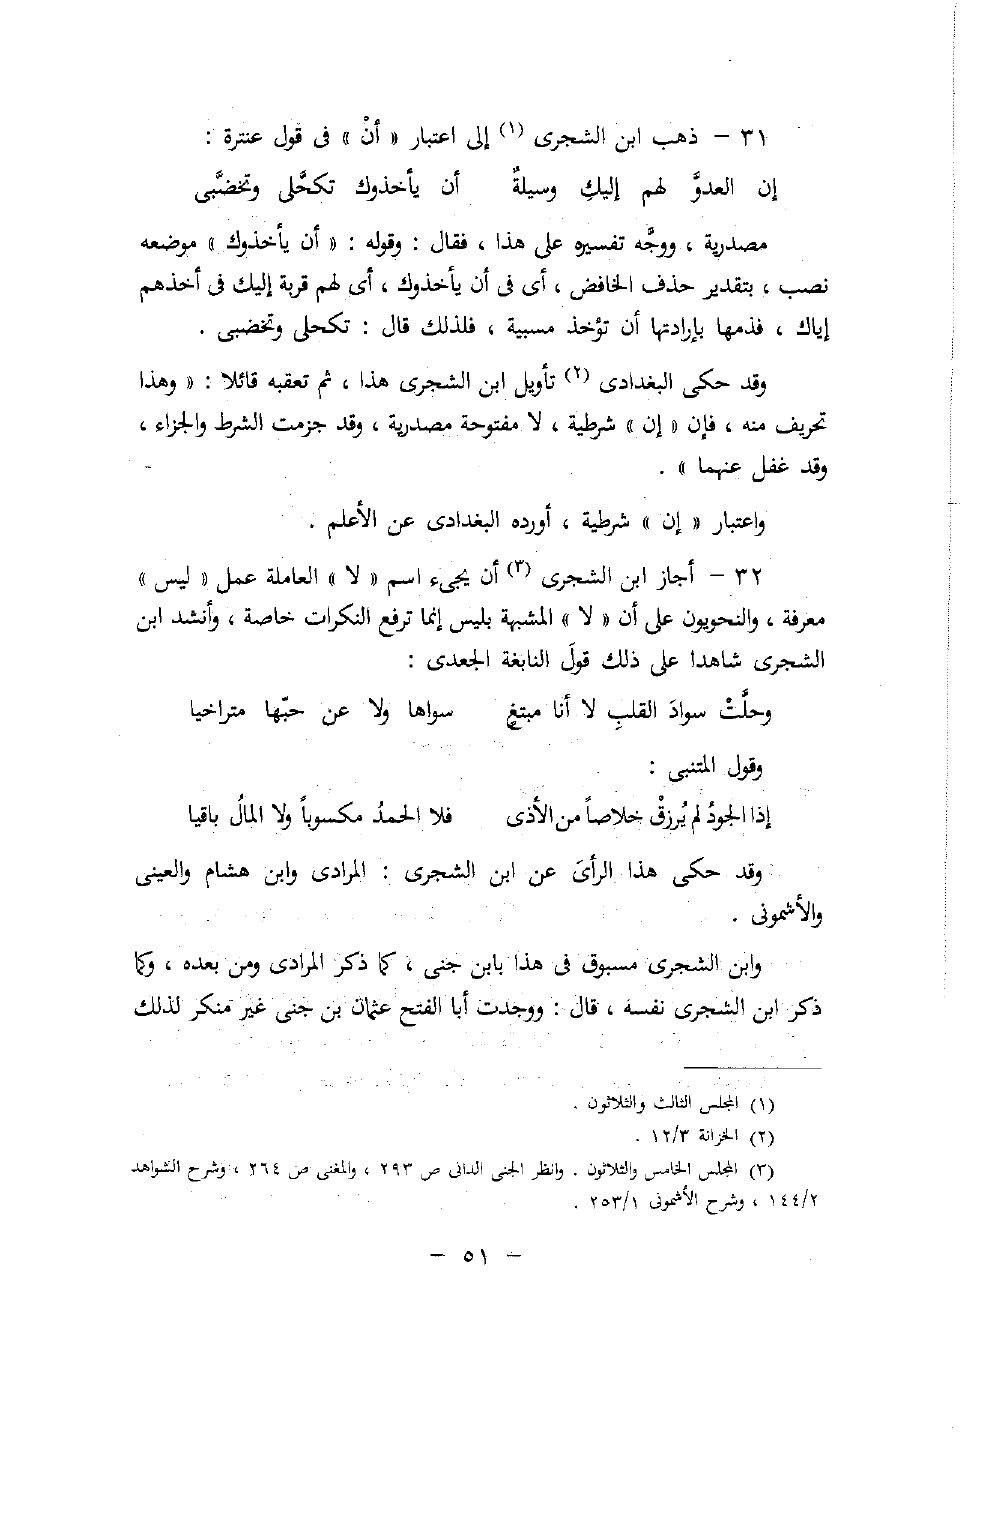 ٣١ – ذهب ابن الشجرى (١) إلى اعتبار « أنْ » فى قول عنترة :
إن العدوَّ لهم إليكِ وسيلةٌ أن يأخذوك تكحَّلى وتخضَّبى
مصدرية ، ووجَّه تفسيره على هذا ، فقال : وقوله : « أن يأخذوك » موضعه
نصب ، بتقدير حذف الخافض ، أى فى أن يأخذوك ، أى لهم قربة إليك فى أخذهم
إياك ، فذمها بإرادتها أن تؤخذ مسبية ، فلذلك قال : تكحلى وتخضبى .
وقد حكى البغدادى (٢) تأويل ابن الشجرى هذا ، ثم تعقبه قائلا : « وهذا
تحريف منه ، فإن « إن » شرطية ، لا مفتوحة مصدرية ، وقد جزمت الشرط والجزاء ،
وقد غفل عنهما » .
واعتبار « إن » شرطية ، أورده البغدادى عن الأعلم .
٣٢ – أجاز ابن الشجرى (٣) أن يجىء اسم « لا » العاملة عمل « ليس »
معرفة ، والنحويون على أن « لا » المشبهة بليس إنما ترفع النكرات خاصة ، وأنشد ابن
الشجرى شاهدا على ذلك قولَ النابغة الجعدى :
وحلَّتْ سوادَ القلبِ لا أنا مبتغٍ سواها ولا عن حبّها متراخيا
وقول المتنبى :
إذا الجودُ لم يُرزقْ خلاصاً من الأذى فلا الحمدُ مكسوباً ولا المالُ باقيا
وقد حكى هذا الرأىَ عن ابن الشجرى : المرادى وابن هشام والعينى
والأشمونى .
وابن الشجرى مسبوق فى هذا بابن جنى ، كما ذكر المرادى ومن بعده ، وكما
ذكر ابن الشجرى نفسه ، قال : ووجدت أبا الفتح عثمان بن جنى غير منكر لذلك
(١) المجلس الثالث والثلاثون .
(٢) الخزانة ١٢/٣ .
(٣) المجلس الخامس والثلاثون . وانظر الجنى الدانى ص ٢٩٣ ، والمغنى ص ٢٦٤ ، وشرح الشواهد
١٤٤/٢ ، وشرح الأشمونى ٢٥٣/١ .
– ٥١ –